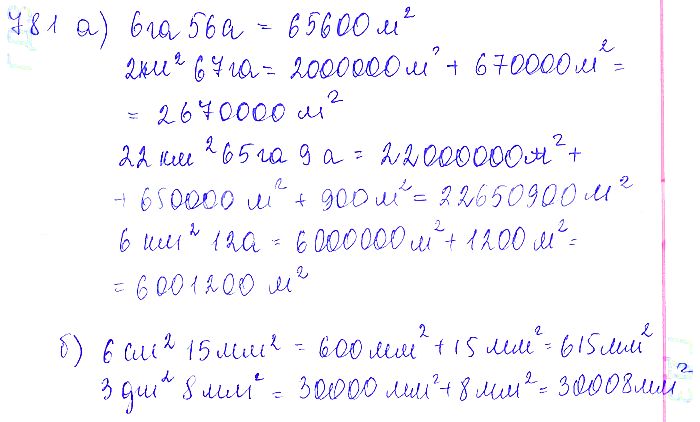 781 а) 6га 56а = 65600 м²
2км² 67га = 2000000м² + 670000м² =
= 2670000 м²
22 км² 65га 9 а = 22000000м² +
+ 650000 м² + 900 м² = 22650900 м²
6 км² 12а = 6000000м² + 1200 м² =
= 6001200 м²
б) 6 см² 15мм² = 600мм² + 15 мм² = 615мм²
3 дм² 8мм² = 30000 мм² + 8мм² = 30008мм²